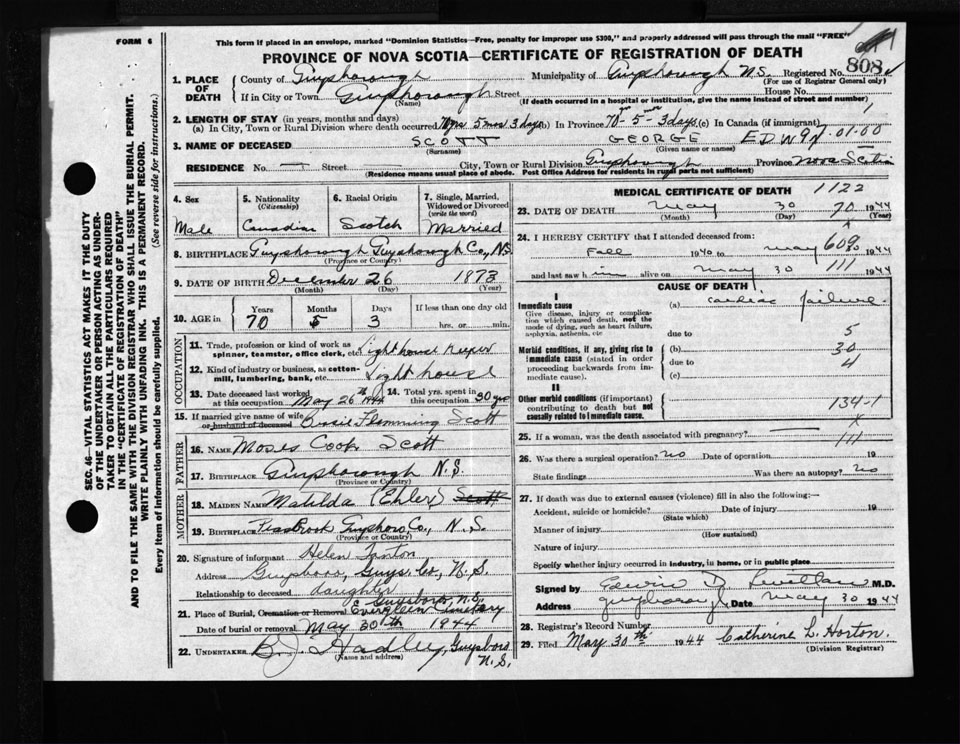 FORM 6
This form if placed in an envelope, marked "Dominion Statistics—Free, penalty for improper use $300," and properly addressed will pass through the mail "FREE"
PROVINCE OF NOVA SCOTIA—CERTIFICATE OF REGISTRATION OF DEATH
SEC. 46—VITAL STATISTICS ACT MAKES IT THE DUTY
OF THE UNDERTAKER OR PERSON ACTING AS UNDER-
TAKER TO OBTAIN ALL THE PARTICULARS REQUIRED
IN THE "CERTIFICATE OF REGISTRATION OF DEATH"
AND TO FILE THE SAME WITH THE DIVISION REGISTRAR WHO SHALL ISSUE THE BURIAL PERMIT.
WRITE PLAINLY WITH UNFADING INK. THIS IS A PERMANENT RECORD.
Every item of information should be carefully supplied. (See reverse side for instructions.)
1. PLACE OF DEATH County of Guysborough Municipality of Guysborough N.S. Registered No. 808
(For use of Registrar General only)
If in City or Town Guysborough Street House No.
(Name) (If death occurred in a hospital or institution, give the name instead of street and number)
2. LENGTH OF STAY (in years, months and days)
(a) In City, Town or Rural Division where death occurred 70 yrs 5 mos 3 days (b) In Province 70-5-3 days (c) In Canada (if immigrant)
3. NAME OF DECEASED SCOTT GEORGE EDWIN 01.00
(Surname) (Given name or names)
RESIDENCE No. Street City, Town or Rural Division Guysborough Province Nova Scotia
(Residence means usual place of abode. Post Office Address for residents in rural parts not sufficient)
4. Sex Male
5. Nationality (Citizenship) Canadian
6. Racial Origin Scotch
7. Single, Married, Widowed or Divorced (write the word) Married
8. BIRTHPLACE Guysborough Guysborough Co., N.S.
(Province or Country)
9. DATE OF BIRTH December 26 1873
(Month) (Day) (Year)
10. AGE in Years 70 Months 5 Days 3 If less than one day old hrs. or min.
OCCUPATION
11. Trade, profession or kind of work as spinner, teamster, office clerk, etc. Lighthouse Keeper
12. Kind of industry or business, as cotton-mill, lumbering, bank, etc. Lighthouse
13. Date deceased last worked at this occupation May 26th 1944
14. Total yrs. spent in this occupation 30 yrs
15. If married give name of wife or husband of deceased Flemming Scott
FATHER
16. NAME Moses Cook Scott
17. BIRTHPLACE Guysborough N.S.
(Province or Country)
MOTHER
18. MAIDEN NAME Matilda (Ehler) Scott
19. BIRTHPLACE Guysboro Co., N.S.
(Province or Country)
20. Signature of informant Helen
Address Guysboro, Guys. Co., N.S.
Relationship to deceased daughter
21. Place of Burial, Cremation or Removal Guysboro, N.S. Evergreen Cemetery
Date of burial or removal May 30th 1944
22. UNDERTAKER Hadley, Guysboro N.S.
(Name and address)
MEDICAL CERTIFICATE OF DEATH 1122
23. DATE OF DEATH May 30 1944
(Month) (Day) (Year)
70
24. I HEREBY CERTIFY that I attended deceased from:
Fall 1940 to May 1944
and last saw him alive on May 30 1944
111
CAUSE OF DEATH
I
Immediate cause (a) cardiac failure
Give disease, injury or complication which caused death, not the mode of dying, such as heart failure, asphyxia, asthenia, etc
due to 5
Morbid conditions, if any, giving rise to immediate cause (stated in order proceeding backwards from immediate cause).
(b) 30
due to 4
(c)
II
Other morbid conditions (if important) contributing to death but not causally related to immediate cause.
134-1
25. If a woman, was the death associated with pregnancy?
111
26. Was there a surgical operation? no Date of operation 19
State findings Was there an autopsy? no
27. If death was due to external causes (violence) fill in also the following:—
Accident, suicide or homicide? Date of injury 19
(State which)
Manner of injury
(How sustained)
Nature of injury
Specify whether injury occurred in industry, in home, or in public place
Signed by Edwin D. M.D.
Address Guysborough Date May 30 1944
28. Registrar's Record Number
29. Filed May 30th 1944 Catherine L. Horton.
(Division Registrar)